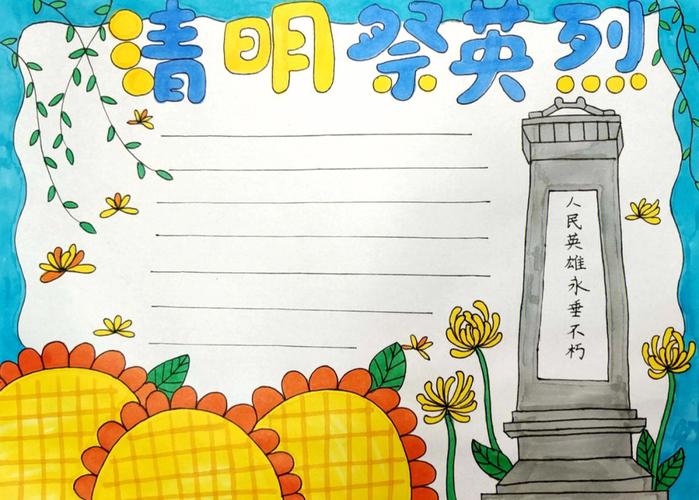 清明祭英烈
人民英雄永垂不朽